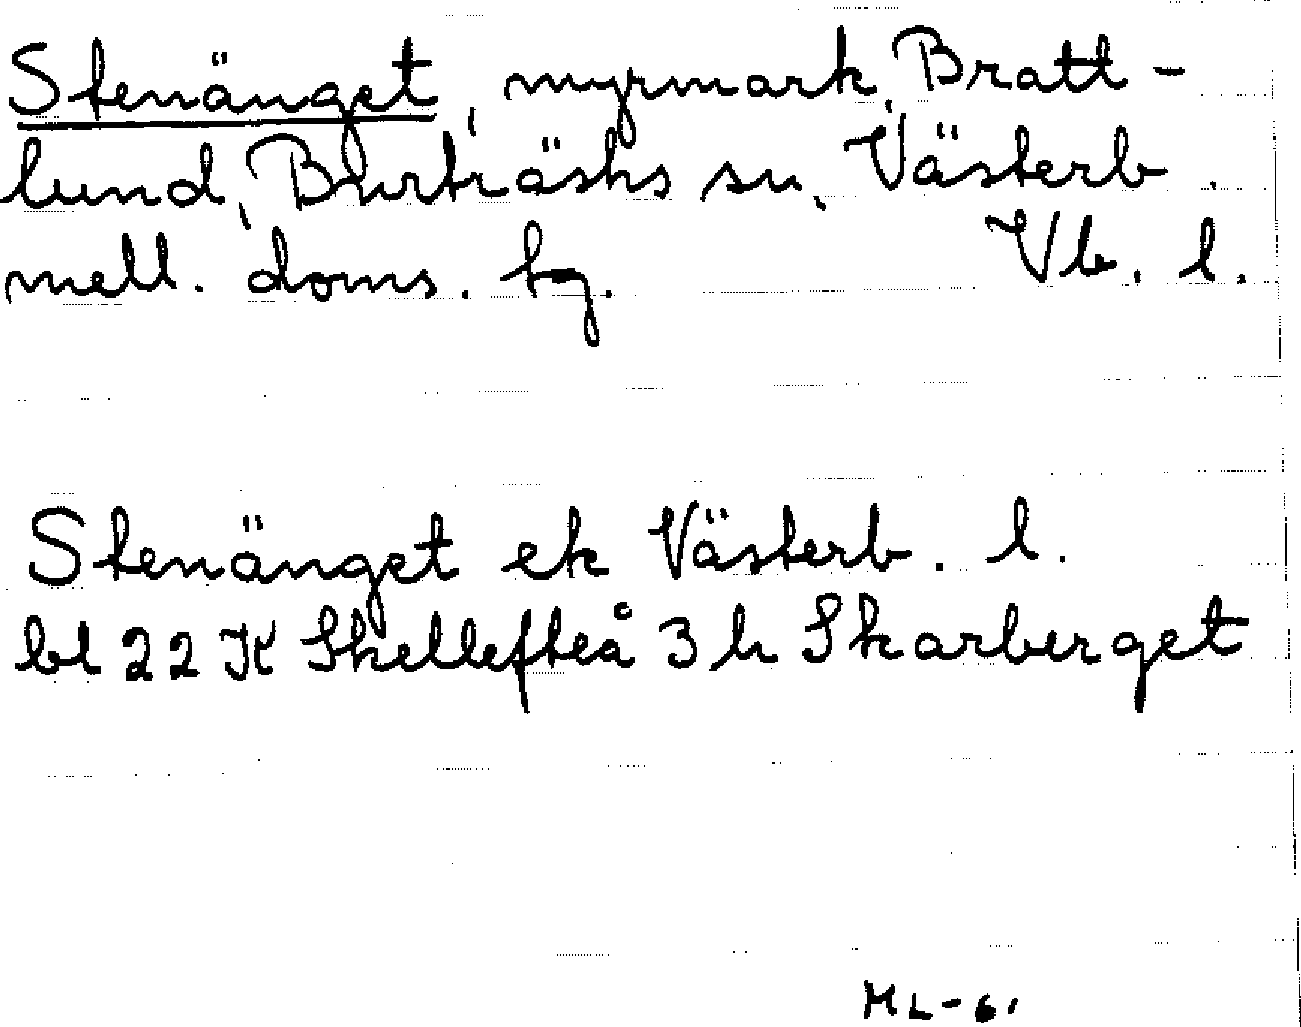 Stenänget, myrmark, Bratt-
lund, Burträsks sn, Västerb.
mell. doms. hg. Vb. l.
Stenänget ek Västerb. l.
bl 22 K Skellefteå 3 h Skarberget
ML-61